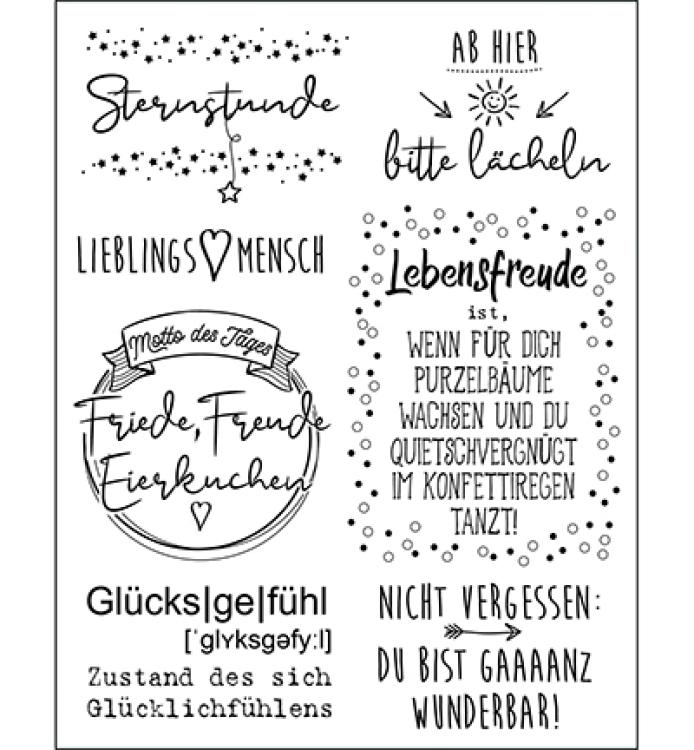 Sternstunde
AB HIER
bitte lächeln
LIEBLINGS MENSCH
Motto des Tages
Friede, Freude
Eierkuchen
Lebensfreude
ist,
WENN FÜR DICH
PURZELBÄUME
WACHSEN UND DU
QUIETSCHVERGNÜGT
IM KONFETTIREGEN
TANZT!
Glücks|ge|fühl
[ˈglʏksgəfyːl]
Zustand des sich
Glücklichfühlens
NICHT VERGESSEN:
DU BIST GAAAANZ
WUNDERBAR!